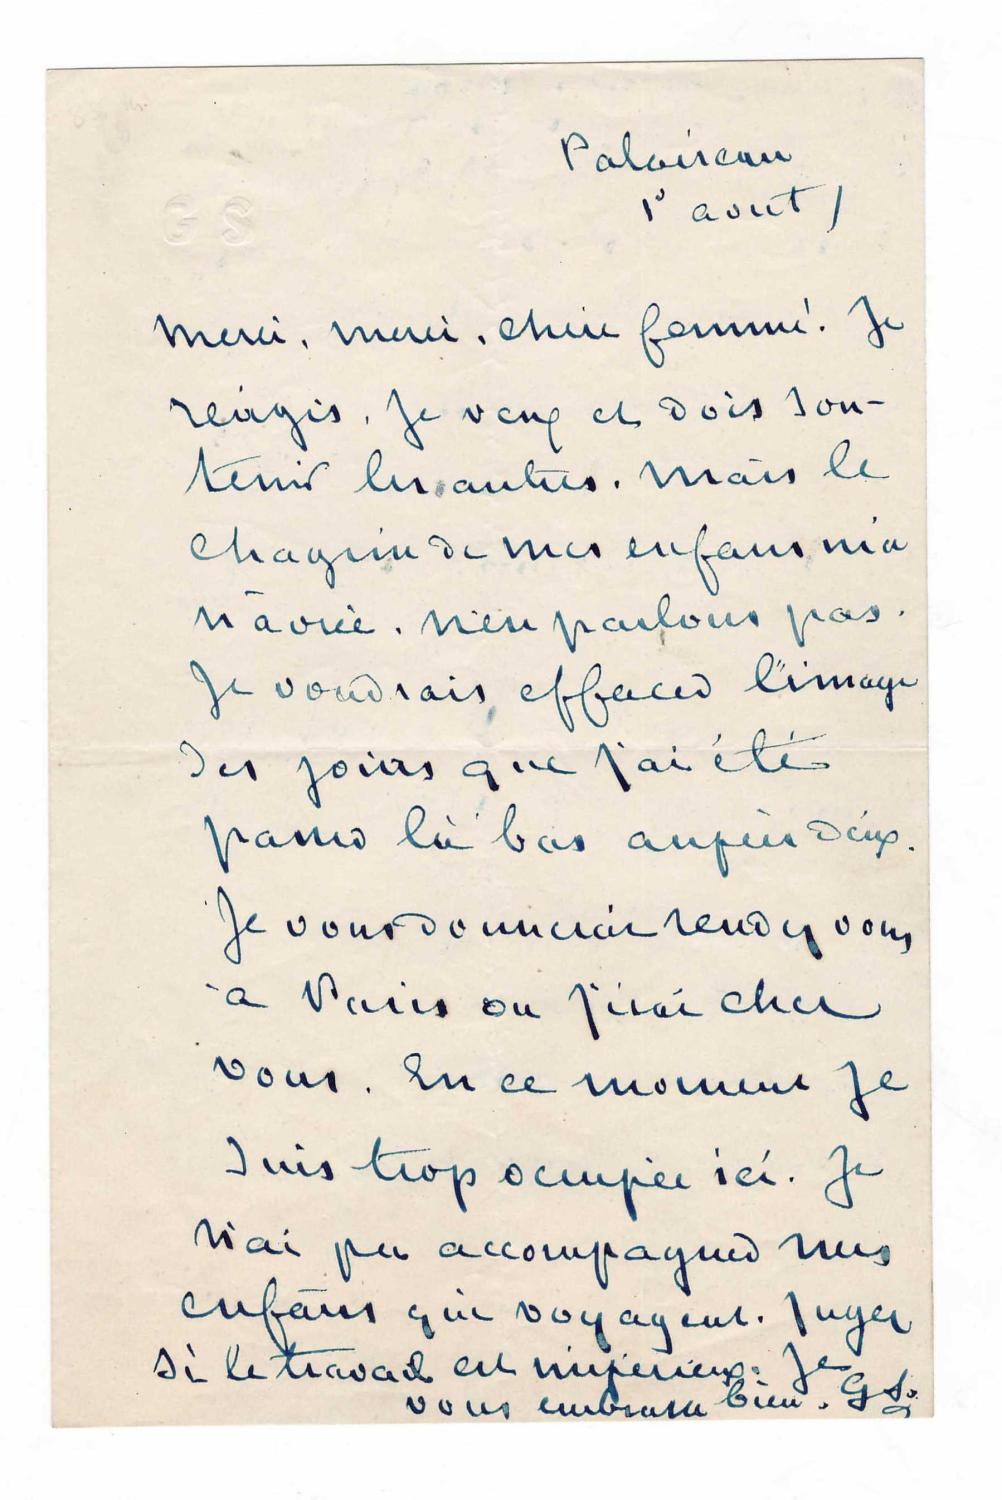 Palaiseau
1er aout /
Merci, merci, chere femme. Je
réagis, Je veux et dois sou-
tenir les autres. Mais le
chagrin de mes enfans m'a
navrée. N'en parlons pas.
Je voudrais effacer l'image
des jours que j'ai été
passer là bas auprès d'eux.
Je vous donnerai rendez vous
à Paris ou j'irai chez
vous. En ce moment je
suis trop occupée ici. Je
n'ai pu accompagner mes
enfans qui voyagent. Jugez
si le travail est impérieux. Je
vous embrasse bien. G S
GS